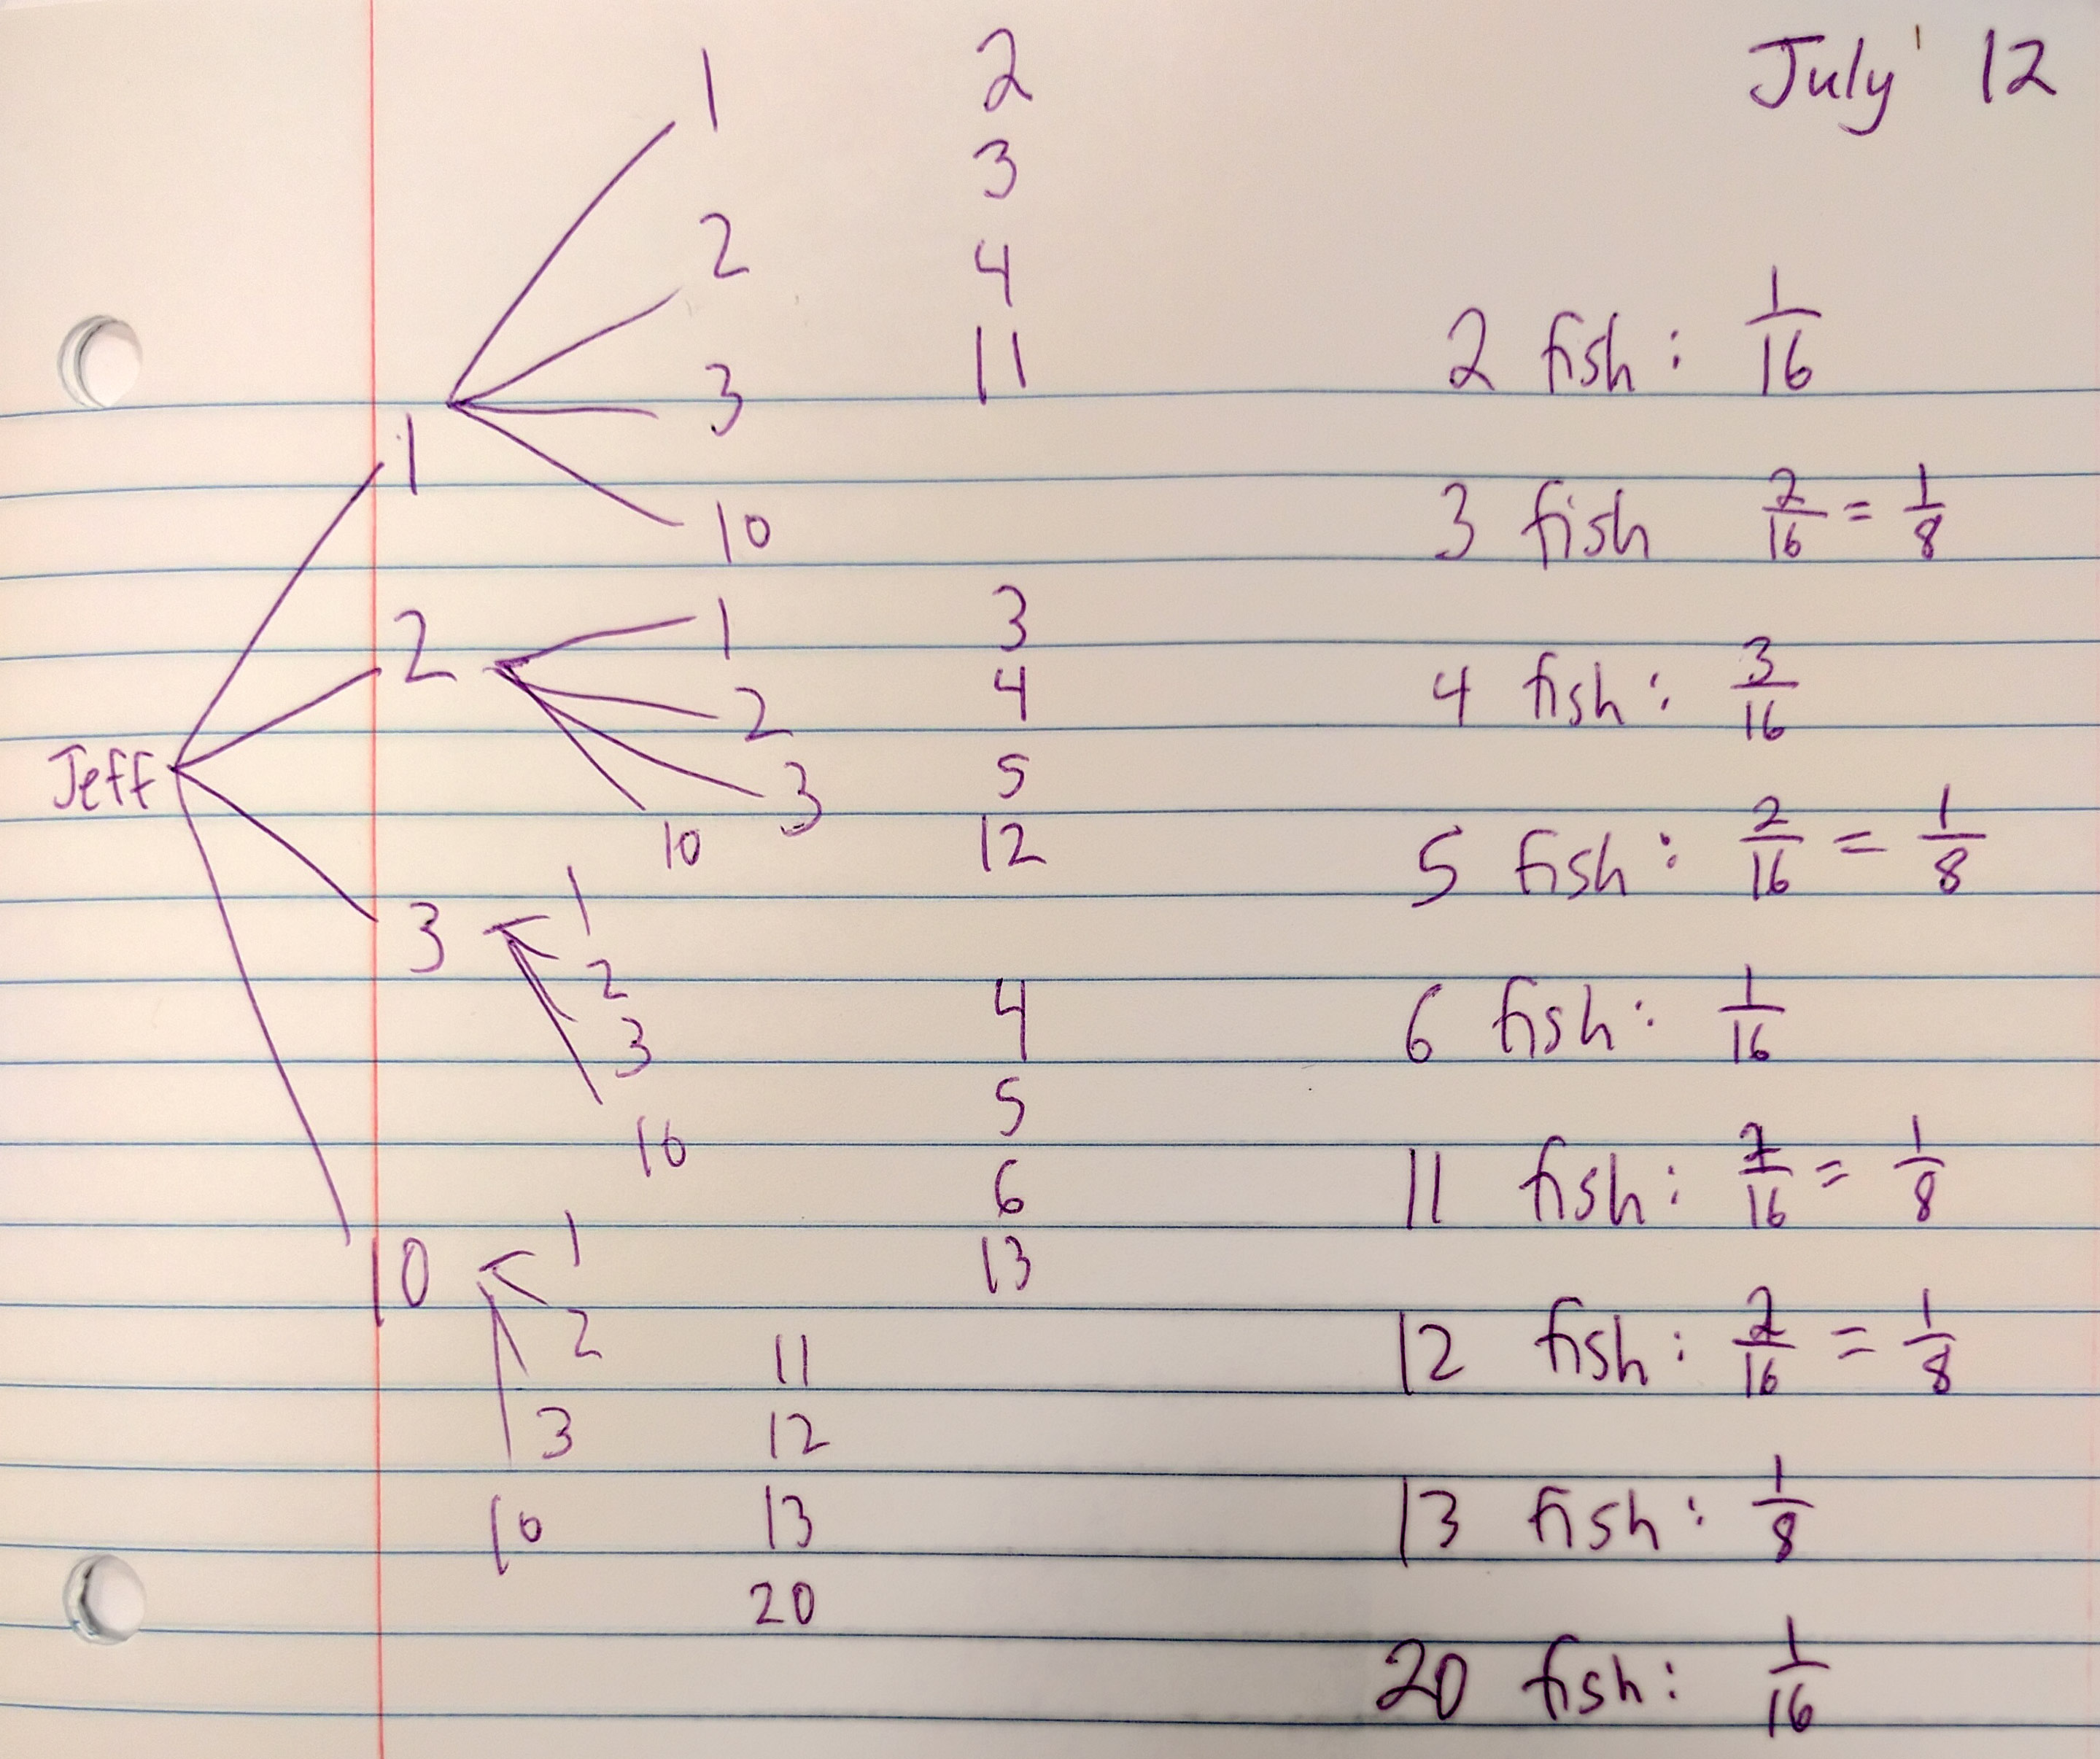 July 12
1 2
3
2 4
11
3
1
10
2 1 3
2 4
Jeff 3 5
10 12
3 1
2 4
3 5
10 6
10 1 13
2 11
3 12
10 13
20
2 fish: 1/16
3 fish 2/16 = 1/8
4 fish: 3/16
5 fish: 2/16 = 1/8
6 fish: 1/16
11 fish: 2/16 = 1/8
12 fish: 2/16 = 1/8
13 fish: 1/8
20 fish: 1/16